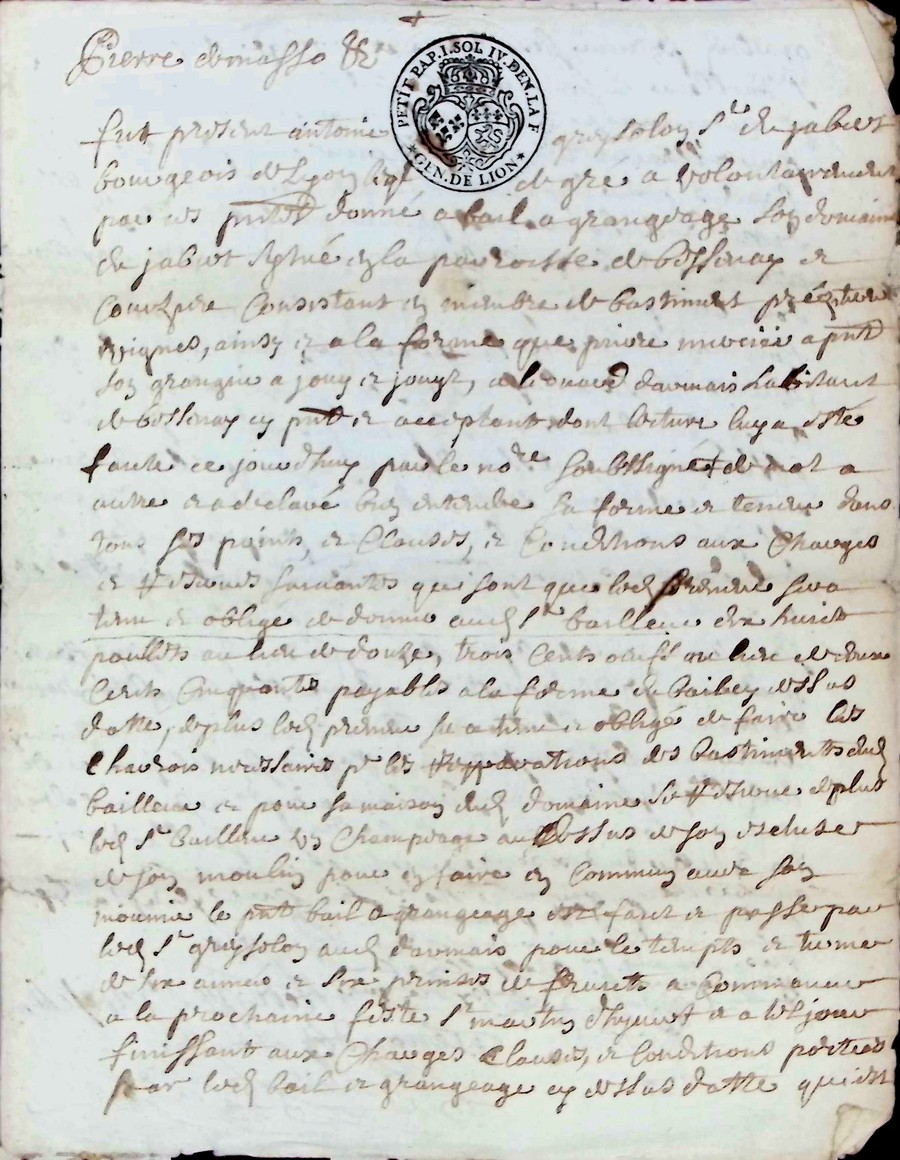 Pierre demasso &c
PETIT PAP. I. SOL IV. DEN. LA F
GEN. DE LION
fut present antoine greysolon Sr de jabert
bourgeois de Lyon leq de gré a volontairement
par ces pntes donné a bail a grangeage son domaine
de jabert situé en la parroisse de bessenay et
consistant en membre de bastiment prez terre
vignes, ainsy et a la forme que pierre a pnt
son granger a jouy et jouyt, a leonard darmais habitant
de bessenay cy pnt et acceptant dont lecture luy a esté
faite ce jourdhuy par le nore soubssigné de mot a
autre et a declaré bien entendre sa forme et teneur dans
tous ses points, et Clauses, et Conditions aux Charges
et Reserves suivantes qui sont que led preneur sera
tenu et obligé de donner aud Sr bailleur dix huict
poullets au lieu de douze, trois Cents oeufs au lieu de deux
Cents Cinquante payables a la forme du bail cy dessus
datte, de plus led preneur sera tenu et obligé de faire les
Charois necessaires pr les Repparations des bastiments dud
bailleur et pour sa maison dud domaine se Reserve de plus
led Sr bailleur un Champeage au dessus de son escluse et
de son moulin pour en faire en Commun avec son
mounier le pnt bail a grangeage est fait et passé par
led Sr greysolon aud darmais pour le temps et terme
de six années et six prinses de fruits a Commancer
a la prochaine feste St martin dhyvert et a tel jour
finissant aux Charges Clauses, et Conditions portées
par led bail et grangeage cy dessus datté qui est